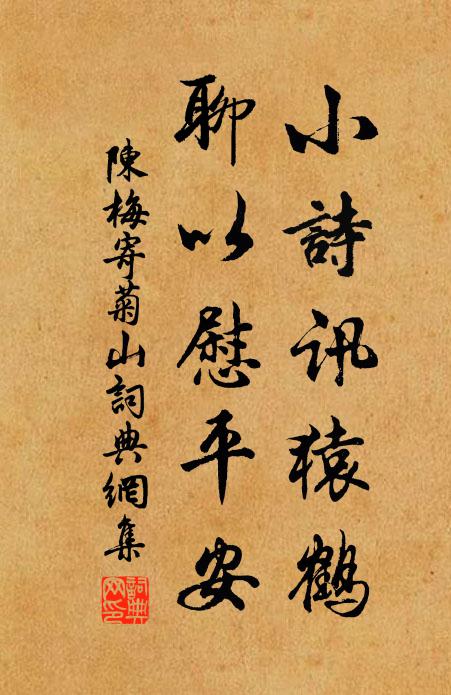 小詩訊猿鶴
聊以慰平安
陳梅寄菊山詞典網集
詞典網印